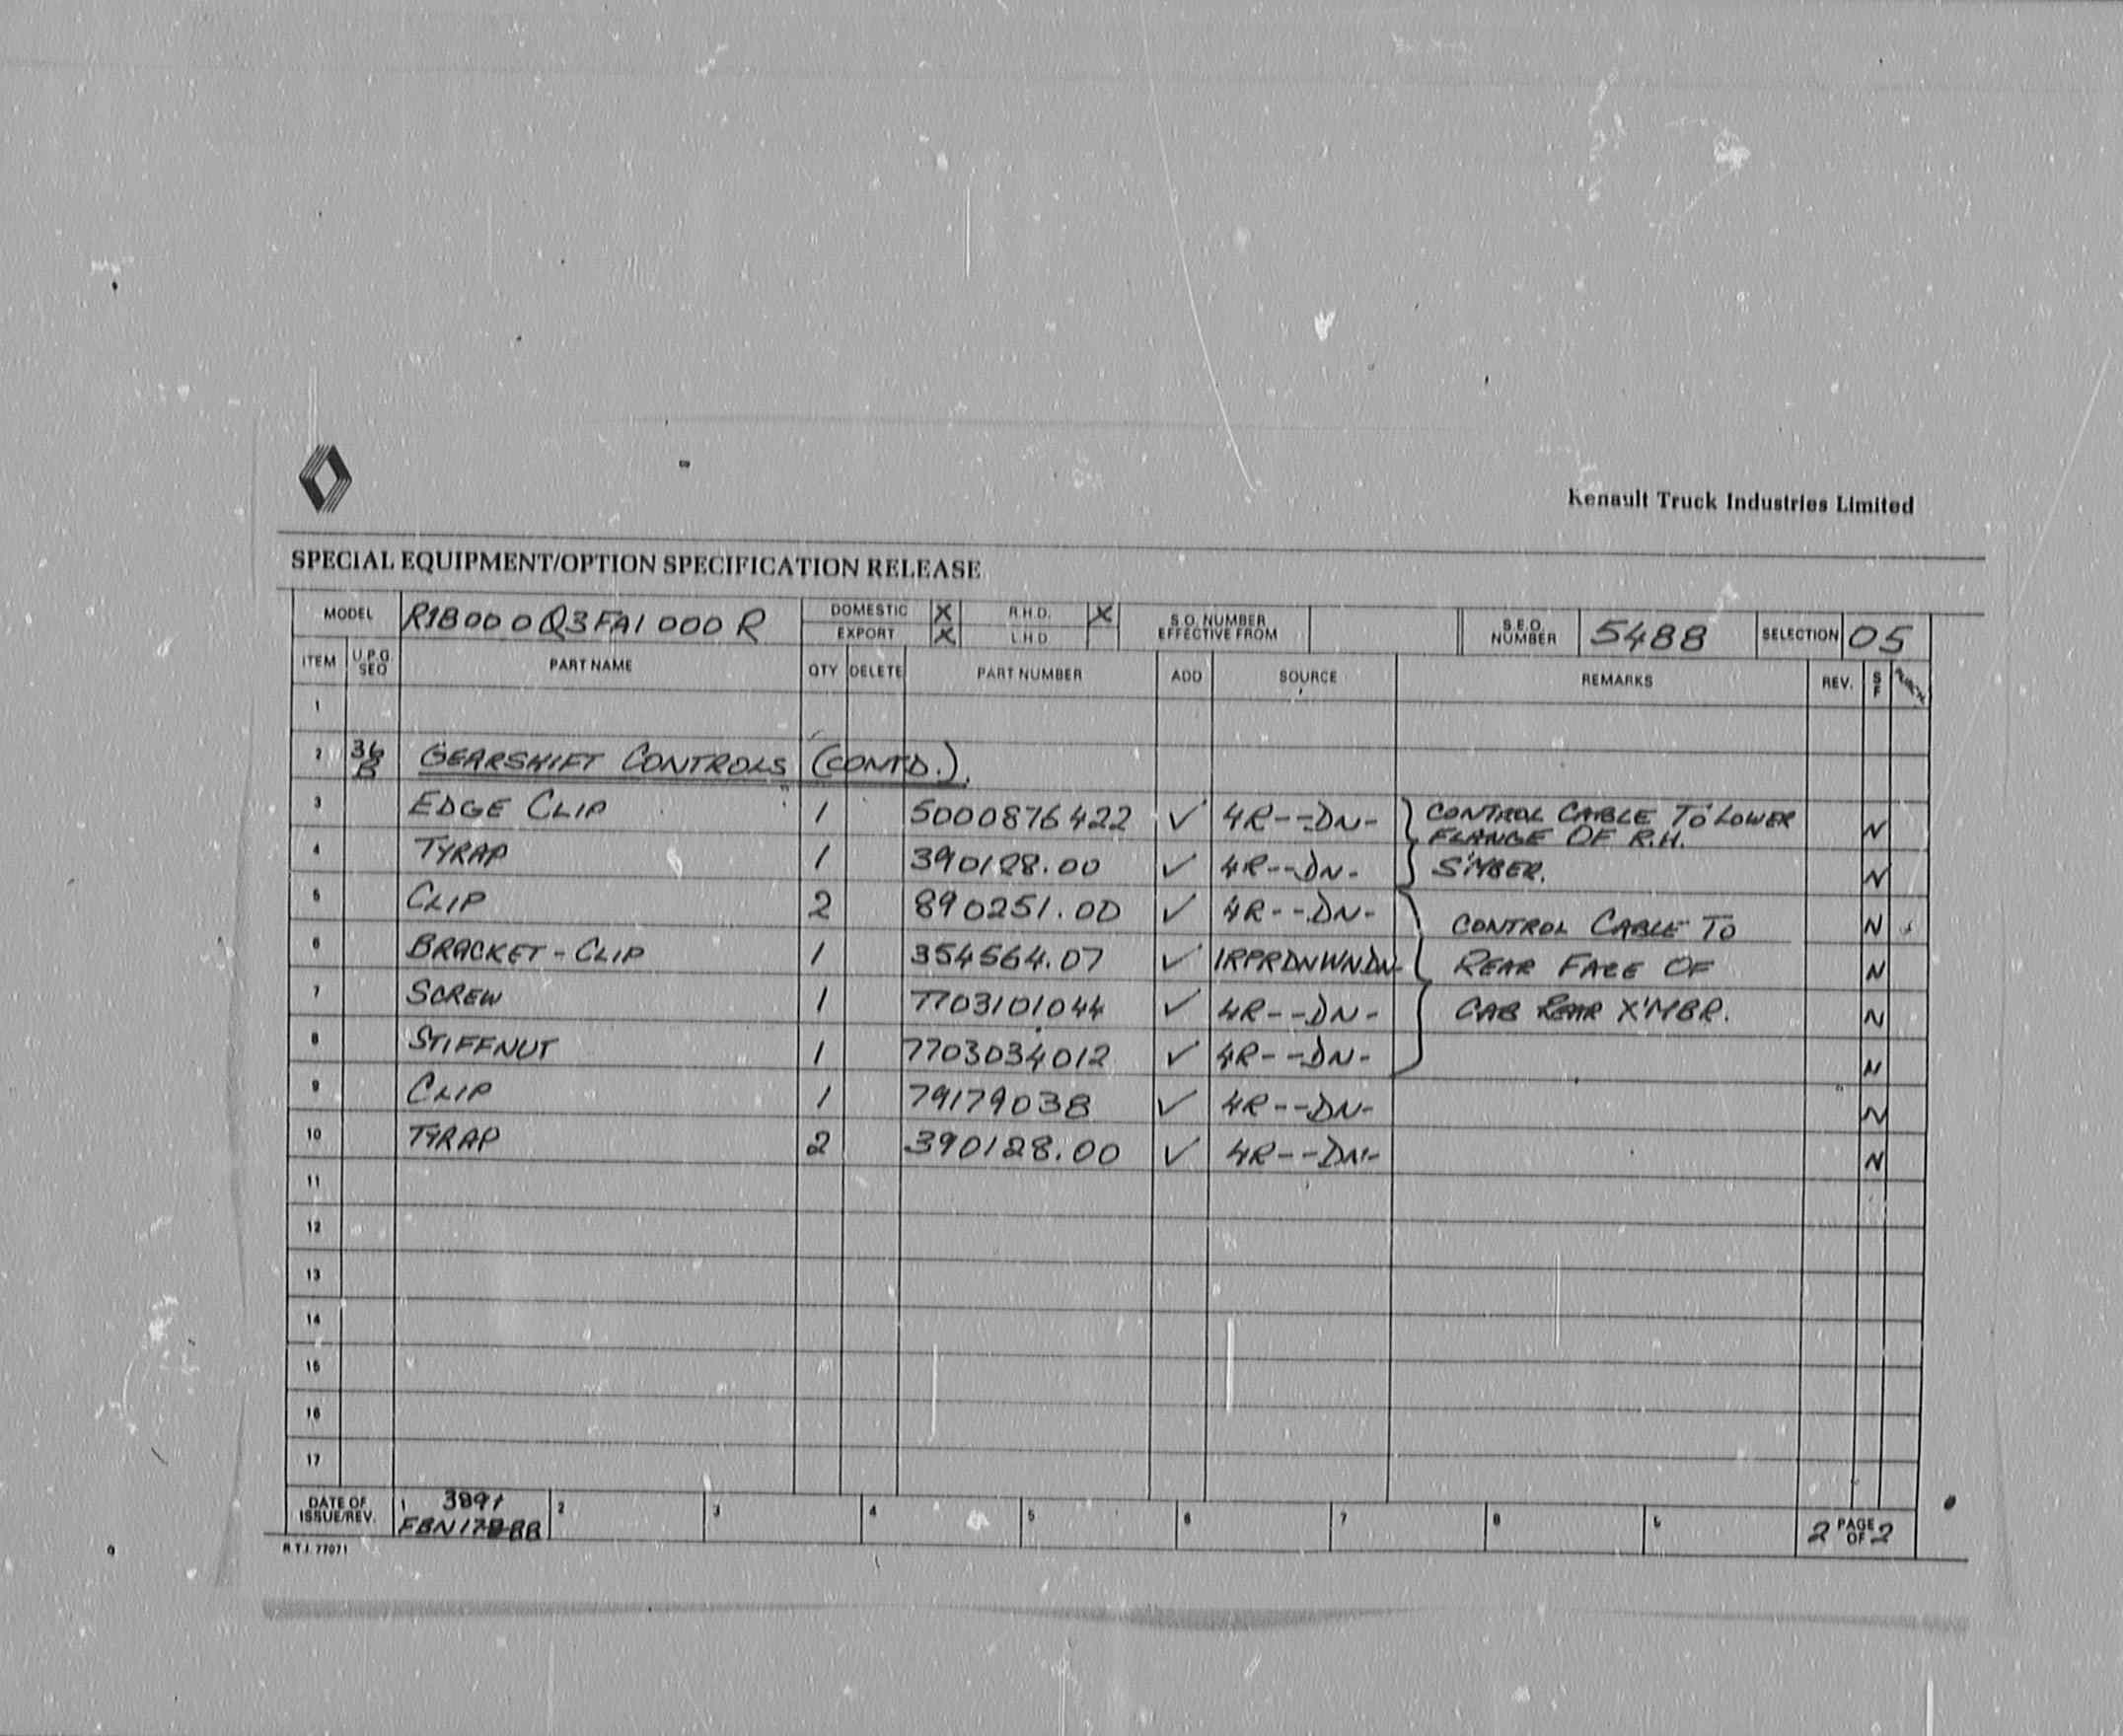 Renault Truck Industries Limited
SPECIAL EQUIPMENT/OPTION SPECIFICATION RELEASE
MODEL R1B000Q3FA1000R DOMESTIC X R.H.D. X S.O. NUMBER EFFECTIVE FROM S.E.O. NUMBER 5488 SELECTION 05
EXPORT X L.H.D
ITEM U.P.G. SEQ PART NAME QTY DELETE PART NUMBER ADD SOURCE REMARKS REV. S F PURCH
1
2 36 B GEARSHIFT CONTROLS (CONTD.).
3 EDGE CLIP 1 5000876422 ✓ 4R--DN- CONTROL CABLE TO LOWER FLANGE OF R.H. N
4 TYRAP 1 390128.00 ✓ 4R--DN- S'MBER. N
5 CLIP 2 890251.00 ✓ 4R--DN- CONTROL CABLE TO N
6 BRACKET-CLIP 1 354564.07 ✓ 1RPRDNWNDN- REAR FACE OF N
7 SCREW 1 7703101044 ✓ 4R--DN- CAB REAR X'MBR. N
8 STIFFNUT 1 7703034012 ✓ 4R--DN- N
9 CLIP 1 79179038 ✓ 4R--DN- N
10 TYRAP 2 390128.00 ✓ 4R--DN- N
11
12
13
14
15
16
17
DATE OF ISSUE/REV. 1 3891 2 3 4 5 6 7 8 2 PAGE OF 2
R.T.I. 77071